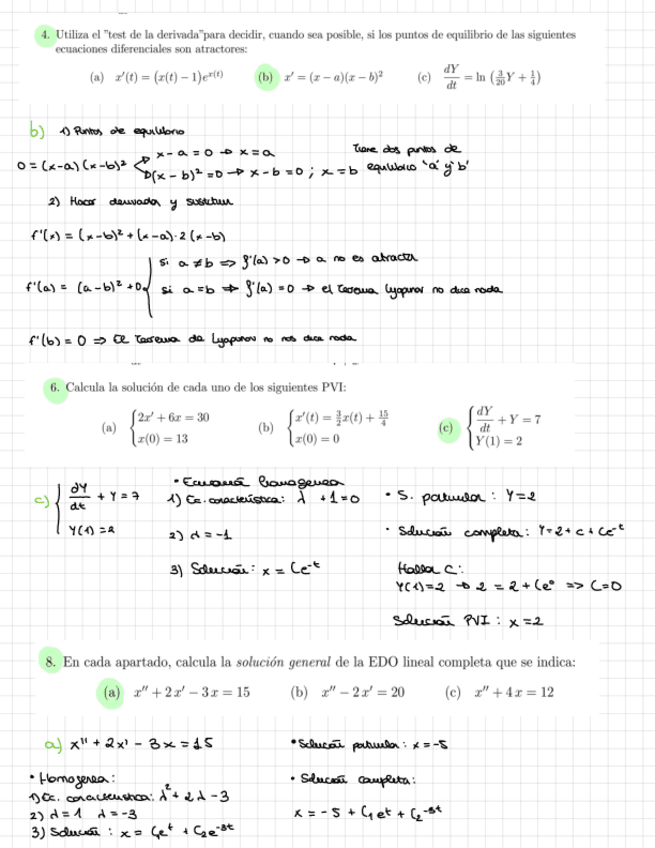 4. Utiliza el "test de la derivada"para decidir, cuando sea posible, si los puntos de equilibrio de las siguientes
ecuaciones diferenciales son atractores:
(a) x'(t) = (x(t) − 1)e^{x(t)} (b) x' = (x − a)(x − b)² (c) dY/dt = ln (3/20 Y + 1/4)
b) 1) Puntos de equilibrio
0 = (x-a)(x-b)² x-a = 0 → x = a
(x-b)² = 0 → x-b = 0 ; x = b
Tiene dos puntos de
equilibrio 'a' y 'b'
2) Hacer derivada y sustituir
f'(x) = (x-b)² + (x-a)·2(x-b)
f'(a) = (a-b)² + 0
si a ≠ b => f'(a) > 0 → a no es atractor
si a = b => f'(a) = 0 → el teorema Lyapunov no dice nada
f'(b) = 0 => El teorema de Lyapunov no nos dice nada
6. Calcula la solución de cada uno de los siguientes PVI:
(a) { 2x' + 6x = 30
x(0) = 13
(b) { x'(t) = 3/2 x(t) + 15/4
x(0) = 0
(c) { dY/dt + Y = 7
Y(1) = 2
c) { dY/dt + Y = 7
Y(1) = 2
• Ecuación homogenea
1) Ec. característica: λ + 1 = 0
2) λ = -1
3) Solución: x = Ce^{-t}
• S. particular : Y = 2
• Solución completa: Y = 2 + c + Ce^{-t}
Hallar C:
Y(1) = 2 → 2 = 2 + Ce⁰ => C = 0
Solución PVI : x = 2
8. En cada apartado, calcula la solución general de la EDO lineal completa que se indica:
(a) x'' + 2x' − 3x = 15 (b) x'' − 2x' = 20 (c) x'' + 4x = 12
a) x'' + 2x' - 3x = 15
• Homogenea:
1) Ec. característica: λ² + 2λ - 3
2) λ = 1 λ = -3
3) Solución : x = C₁e^t + C₂e^{-3t}
• Solución particular : x = -5
• Solución completa:
x = -5 + C₁e^t + C₂^{-3t}